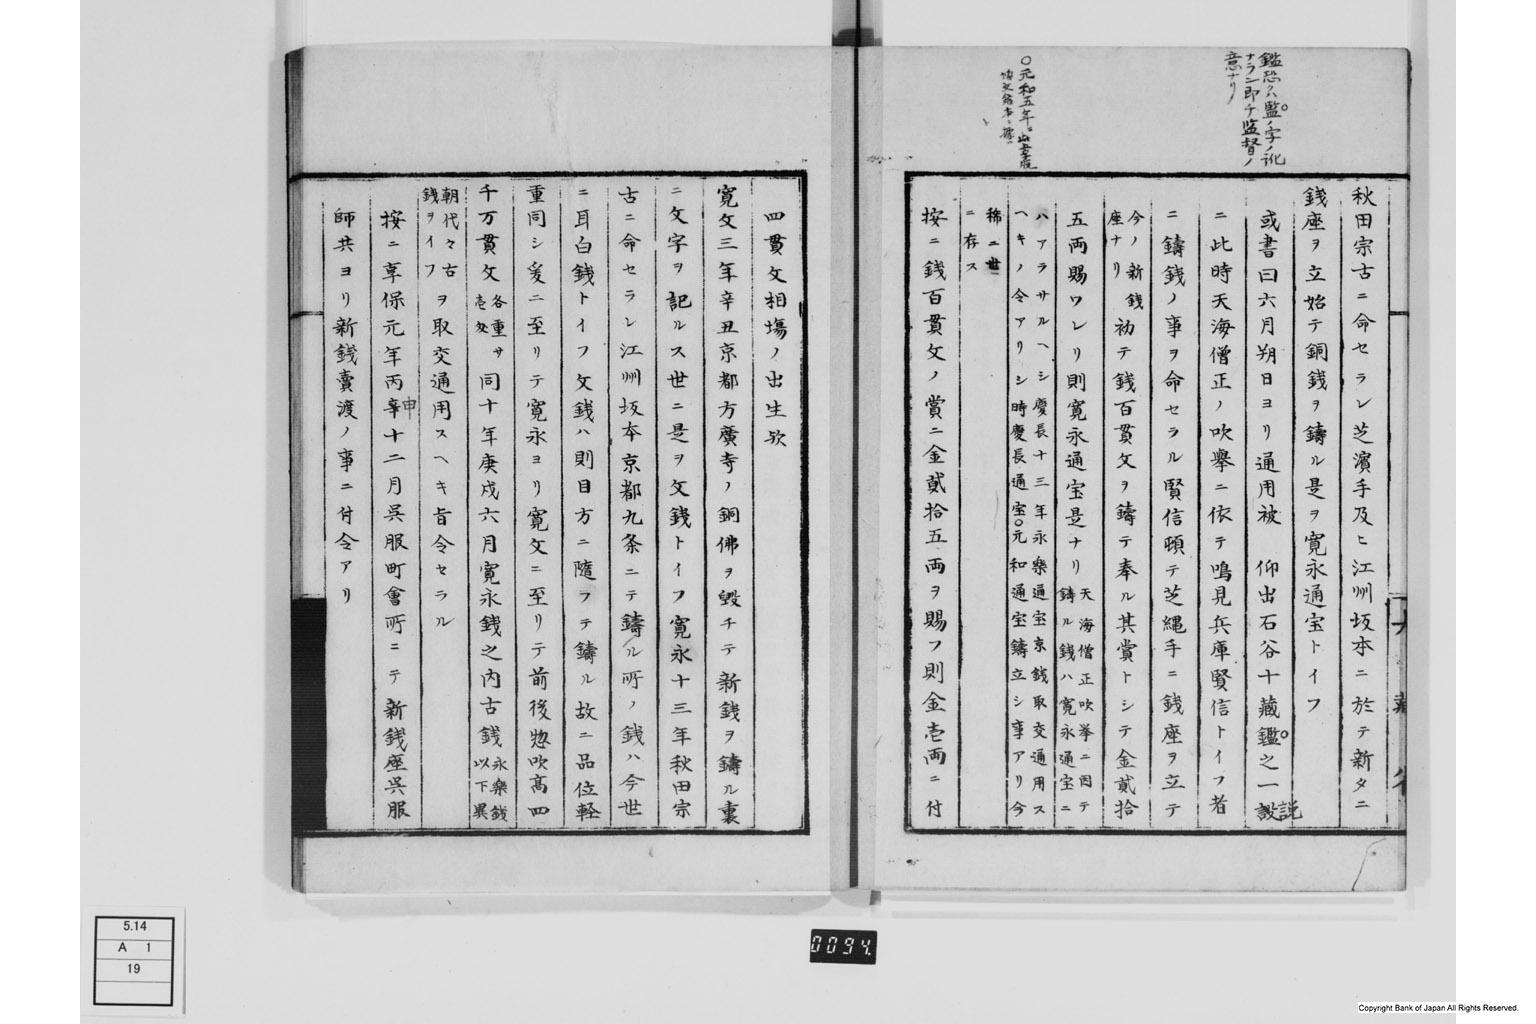 鑑恐クハ監ノ字ノ訛
ナラン即チ監督ノ
意ナリ
秋田宗古ニ命セラレ芝濱手及ヒ江州坂本ニ於テ新タニ
銭座ヲ立始テ銅銭ヲ鑄ル是ヲ寛永通宝トイフ
或書曰六月朔日ヨリ通用被 仰出石谷十藏鑑之一説
ニ此時天海僧正ノ吹擧ニ依テ鳴見兵庫賢信トイフ者
ニ鑄銭ノ事ヲ命セラル賢信頓テ芝縄手ニ銭座ヲ立テ
今ノ新銭
座ナリ
初テ銭百貫文ヲ鑄テ奉ル其賞トシテ金貳拾
五両賜ワレリ則寛永通宝是ナリ
天海僧正吹挙ニ因テ
鑄ル銭ハ寛永通宝ニ
ハアラサルヘシ慶長十三年永樂通宝京銭取交通用ス
ヘキノ令アリシ時慶長通宝元和通宝鑄立シ事アリ今
稀ニ世
ニ存ス
○元和五年ニ
按ニ銭百貫文ノ賞ニ金貳拾五両ヲ賜フ則金壱両ニ付
四貫文相塲ノ出生欤
寛文三年辛丑京都方廣寺ノ銅佛ヲ毀チテ新銭ヲ鑄ル裏
ニ文字ヲ記ルス世ニ是ヲ文銭トイフ寛永十三年秋田宗
古ニ命セラレ江州坂本京都九条ニテ鑄ル所ノ銭ハ今世
ニ耳白銭トイフ文銭ハ則目方ニ隨フテ鑄ル故ニ品位軽
重同シ爰ニ至リテ寛永ヨリ寛文ニ至リテ前後惣吹高四
千万貫文
各重サ
壱匁
同十年庚戌六月寛永銭之内古銭
永樂銭
以下異
朝代々古
銭ヲイフ
ヲ取交通用スヘキ旨令セラル
按ニ享保元年丙申十二月呉服町會所ニテ新銭座呉服
師共ヨリ新銭賣渡ノ事ニ付令アリ
0094.
5.14
A 1
19
Copyright Bank of Japan All Rights Reserved.